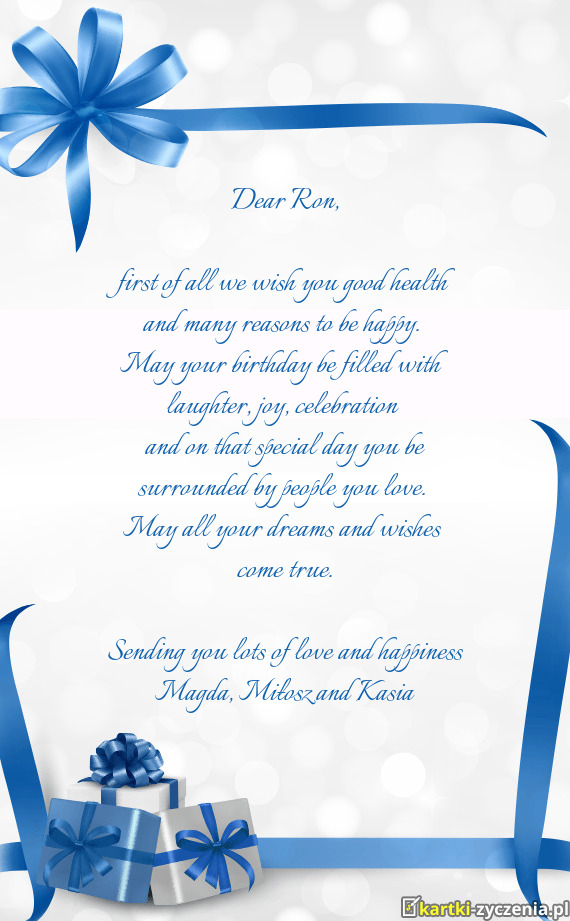 Dear Ron,
first of all we wish you good health
and many reasons to be happy.
May your birthday be filled with
laughter, joy, celebration
and on that special day you be
surrounded by people you love.
May all your dreams and wishes
come true.
Sending you lots of love and happiness
Magda, Miłosz and Kasia
kartki-zyczenia.pl